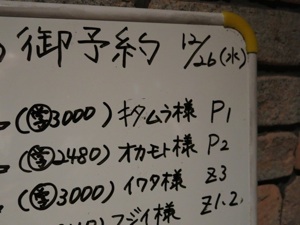 御予約 12/26(水)
(学3000)キタムラ様 P1
(学2480)オカモト様 P2
(学3000)イワタ様 Z3
フジイ様 Z1.2.